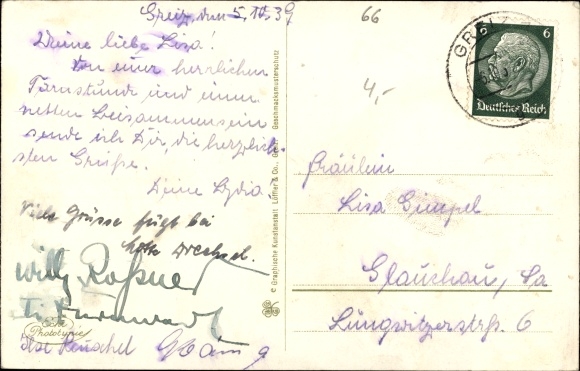 Greiz, den 5.10.39
Meine liebe Lisa!
Von einer herrlichen
Turnstunde und einem
netten Beisammensein
sende ich Dir, die herzlich-
sten Grüße.
Deine Lydia.
Viele Grüsse fügt bei
Drechsel.
Willy Roßner
Echte
Photographie
Ilse
66
4,-
© Graphische Kunstanstalt Löffler & Co., Greiz Geschmacksmusterschutz
GREIZ
6
Deutsches Reich
Fräulein
Lisa Gimpel
Glauchau, Sa
Lungwitzerstrß. 6